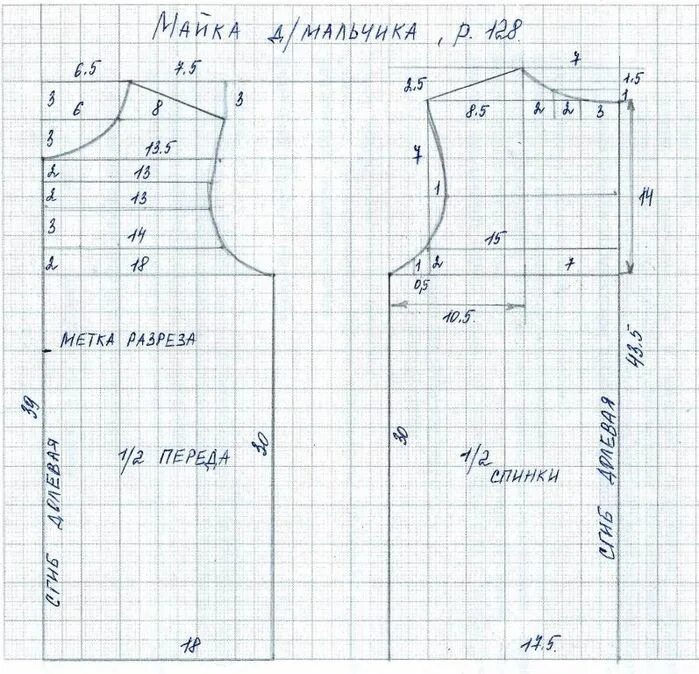 Майка д/мальчика, р. 128.
6.5 7.5
7
3 6 8 3
2,5 1.5
8.5 2 2 3 1
3
13.5
7
2 13
2 13
1 14
3 14
15
2 18
1 2 7
0,5
10.5.
Метка разреза
43.5
39
30
30
1/2 переда
1/2 спинки
сгиб долевая
сгиб долевая
18
17.5.